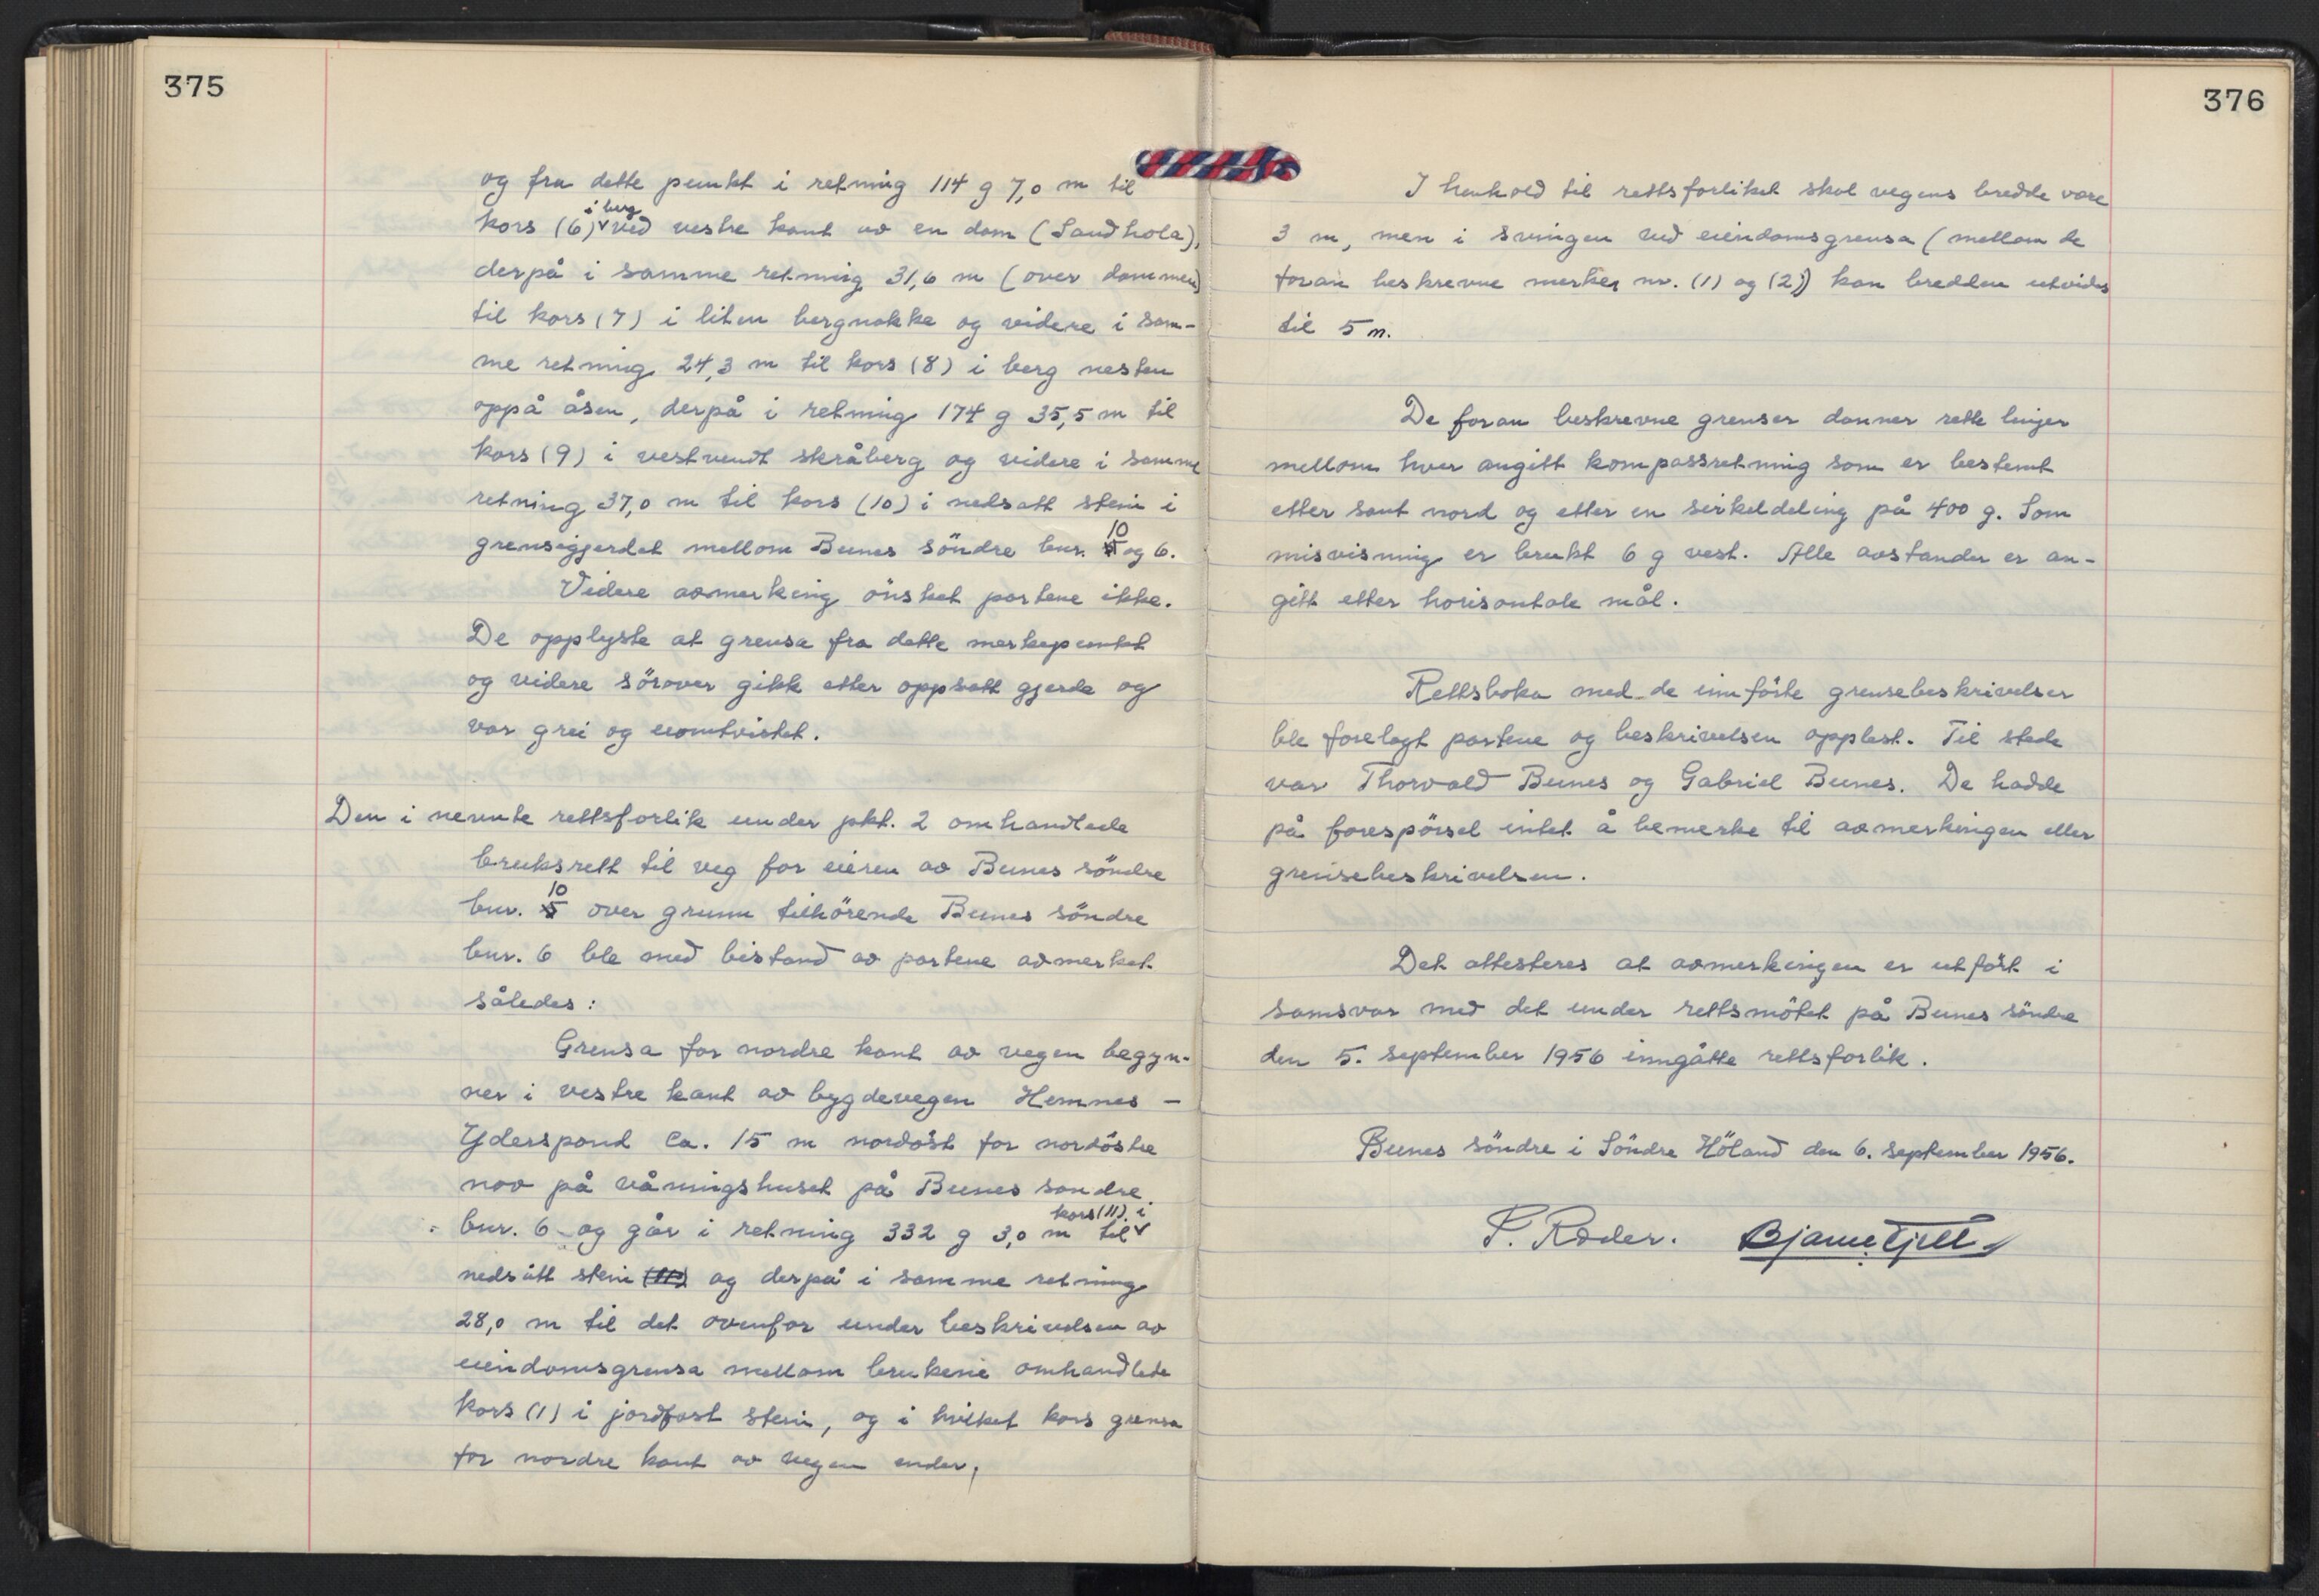 375
og fra dette punkt i retning 114 g 7,0 m til
kors (6) i berg ved vestre kant av en dam (Sandhola),
derpå i samme retning 31,6 m (over dammen)
til kors (7) i liten bergnakke og videre i sam-
me retning 24,3 m til kors (8) i berg nesten
oppå åsen, derpå i retning 174 g 35,5 m til
kors (9) i vestvendt skråberg og videre i samme
retning 37,0 m til kors (10) i nedsatt stein i
grensegjerdet mellom Bunes söndre bnr. 10 og 6.
Videre avmerking önsket partene ikke.
De opplyste at grensa fra dette merkepunkt
og videre sörover gikk etter oppsatt gjerde og
var grei og uomtvistet.
Den i nevnte rettsforlik under pkt. 2 omhandlede
bruksrett til veg for eieren av Bunes söndre
bnr. 10 over grunn tilhörende Bunes söndre
bnr. 6 ble med bistand av partene avmerket
således:
Grensa for nordre kant av vegen begyn-
ner i vestre kant av bygdevegen Hemnes –
Yderspond ca. 15 m nordöst for nordöstre
nov på våningshuset på Bunes sondre
bnr. 6 og går i retning 332 g 3,0 m til kors (11) i
nedsatt stein (11) og derpå i samme retning
28,0 m til det ovenfor under beskrivelsen av
eiendomsgrensa mellom brukene omhandlede
kors (1) i jordfast stein, og i hvilket kors grensa
for nordre kant av vegen ender.
376
I henhold til rettsforliket skal vegens bredde være
3 m, men i svingen ved eiendomsgrensa (mellom de
foran beskrevne merker nr. (1) og (2)) kan bredden utvides
til 5 m.
De foran beskrevne grenser danner rette linjer
mellom hver angitt kompassretning som er bestemt
etter sant nord og etter en sirkeldeling på 400 g. Som
misvisning er brukt 6 g vest. Alle avstander er an-
gitt etter horisontale mål.
Rettsboka med de innförte grensebeskrivelser
ble forelagt partene og beskrivelsen opplest. Til stede
var Thorvald Bunes og Gabriel Bunes. De hadde
på forespörsel intet å bemerke til avmerkingen eller
grensebeskrivelsen.
Det attesteres at avmerkingen er utfört i
samsvar med det under rettsmötet på Bunes söndre
den 5. september 1956 inngåtte rettsforlik.
Bunes söndre i Söndre Höland den 6. september 1956.
P. Røder. Bjarne Fjell